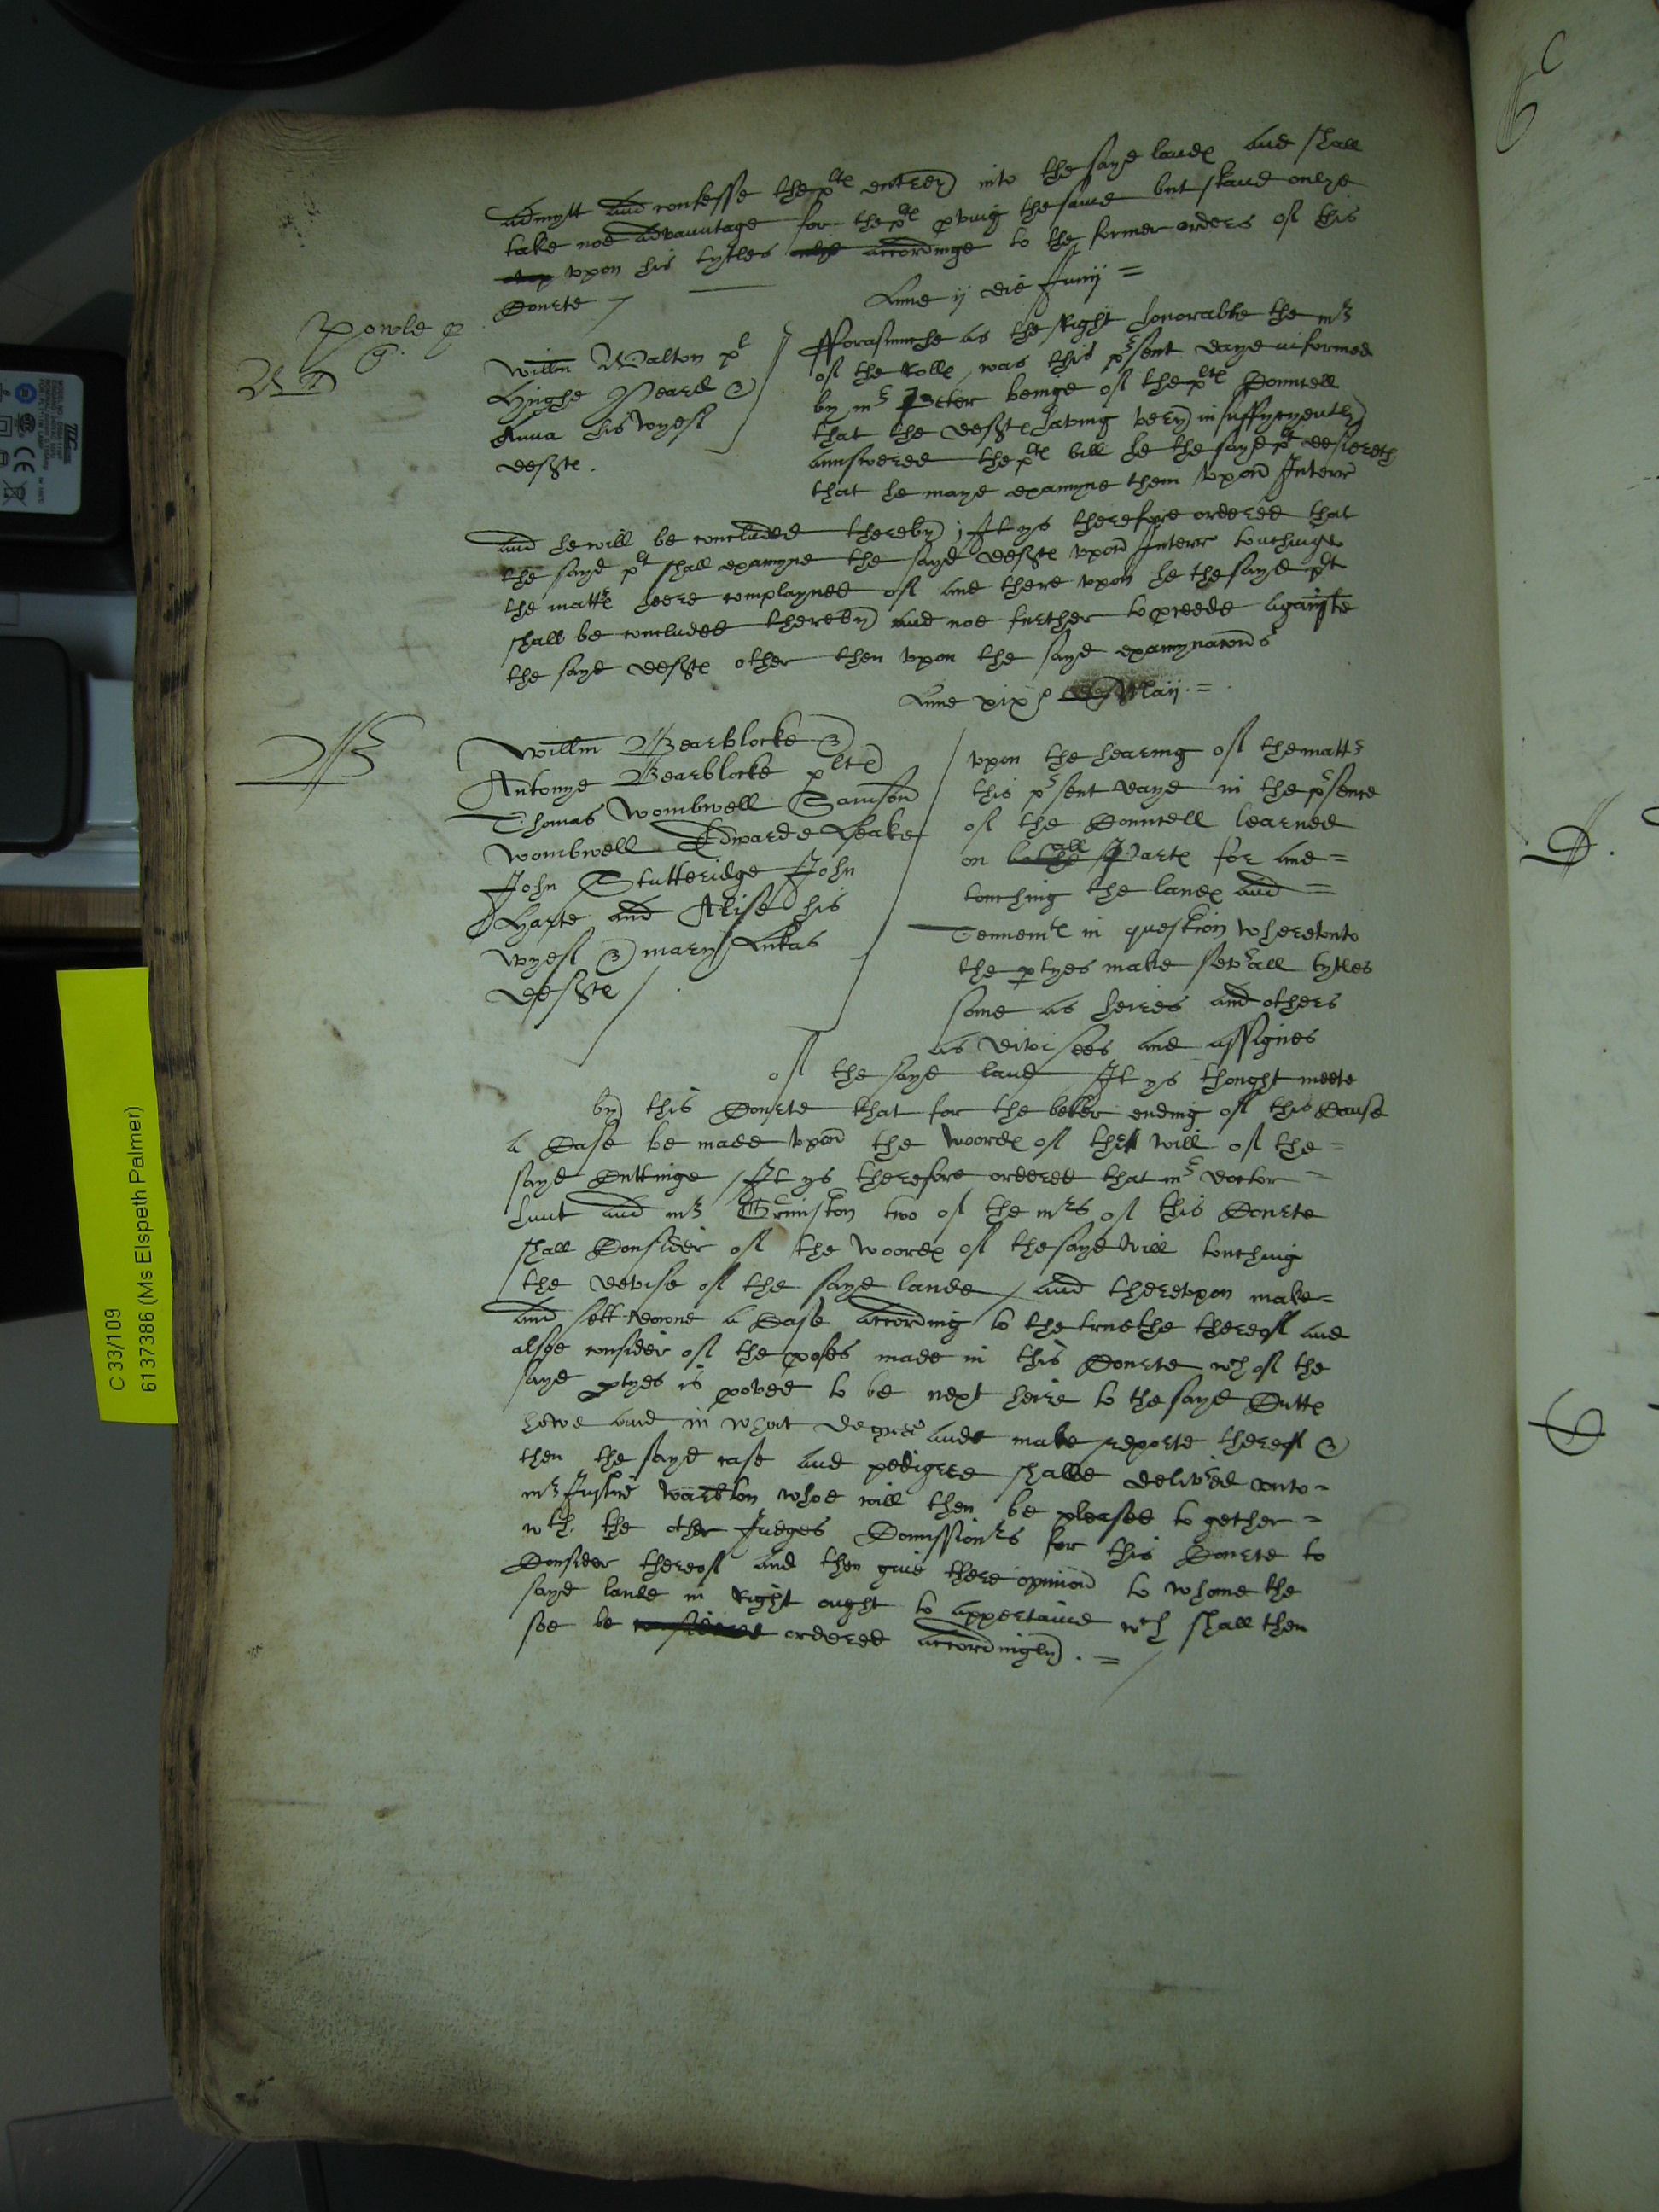 admytt and confesse the plte entrey into the sayd lande and shall
take noe advauntage for the plte pving the same but stand onlye
upon his tytles accordinge to the former orders of this
Courte
Lune ij die Junij =
Powle p
W
Willm Walton pl
Hughe Peard &
Anna his wyef
defte.
Fforasmuche as the Right honorable the mr
of the Rolle was this psent daye informed
by mr Peter beinge of the plte Councell
that the defte having very insuffycyently
aunswered the plte bill he the sayd plt desiereth
that he maye examyne them upon Interr
and he will be concluded thereby ; It ys therefore ordered that
the sayd plt shall examyne the sayd defte upon Interr touchinge
the mattr heere complayned of and there upon he the sayd plt
shall be concluded thereby and noe further to pceede againste
the sayd defte other then upon the sayd examynacons
Lune xixo Maij. =
B
Willm Bearblocke &
Antonye Bearblocke plte
Thomas Wombwell Samson
Wombwell Edwarde Leake
John Stutteridge John
Harte and Alise his
wyef & mary Lukas
defte
upon the hearing of the mattr
this psent daye in the psence
of the Councell learned
on all Parte for and =
touching the lande and =
Tennemte in question whereunto
the ptyes make sevrall tytles
some as heires and others
as devisees and assignes
of the sayd land It ys thought meete
by this Courte that for the better ending of this Cause
a Case be made upon the woorde of the will of the =
sayd Cuttinge It ys therefore ordered that mr doctor =
hunt and mr Grimston two of the mrs of this Courte
shall Consider of the woorde of the sayd will touching
the devise of the sayd lande and thereupon make =
and sett downe a Case according to the truethe thereof and
alsoe consider of the profes made in this Courte wch of the
sayd ptyes is proved to be next heire to the sayd Cutte
howe and in what degree and make reporte thereof &
then the sayd case and pedigree shalbe delivred unto =
mr Justice Warbton whoe will then be pleased to gether =
wth the other Judges Comissionrs for this Courte to
Consider thereof and then give there opinion to whome the
sayd lande in Right ought to appertaine wch shall then
soe be ordered accordingly. =
C 33/109
6137386 (Ms Elspeth Palmer)